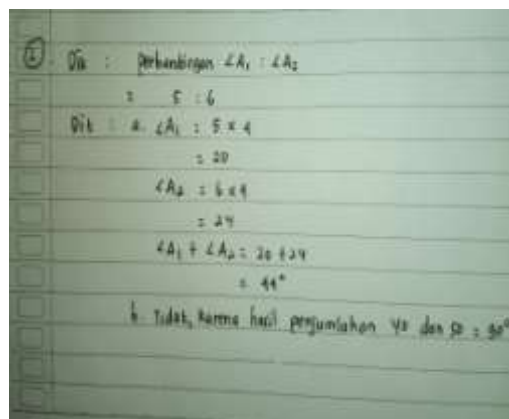 2. Dik : Perbandingan ∠A₁ : ∠A₂
= 5 : 6
Dit : a. ∠A₁ = 5 x 4
= 20
∠A₂ = 6 x 4
= 24
∠A₁ + ∠A₂ = 20 + 24
= 44°
b. Tidak, karena hasil penjumlahan 40 dan 50 = 90°